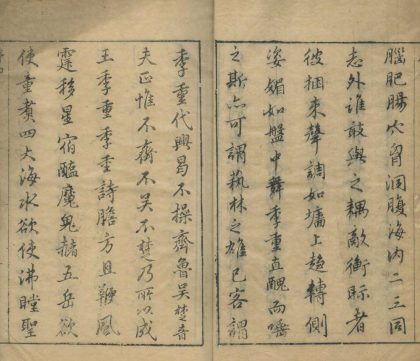 腦肥腸火胃洄腹海內二三同
志外誰敢與之耦敵衡際者
彼捆束聲調如墉上趨轉側
姿媚如盤中舞季重直醜而嗤
之斯亦可謂執林之雄已客謂
季重代興曷不操齊魯吳楚音
夫正惟不齊不吳不楚乃所以成
王季重季重詩膽方且鞭風
霆移星宿醢魔鬼赭五岳欲
使童煮四大海水欲使沸瞠聖